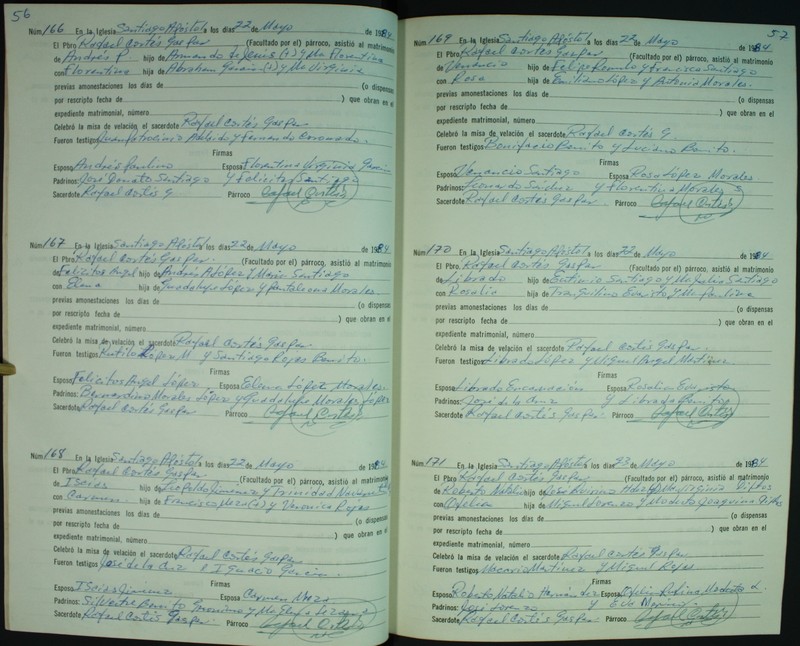 56
Núm 166 En la Iglesia Santiago Apóstol a los días 22 de Mayo de 1984
El Pbro Rafael Cortés Gaspar (Facultado por el) párroco, asistió al matrimonio
de Andrés P. hijo de Armando de Jesús (+) y Ma Florentina
con Florentina hija de Abraham García (+) y Ma Virginia
previas amonestaciones los días de (o dispensas
por rescripto fecha de ) que obran en el
expediente matrimonial, número
Celebró la misa de velación el sacerdote Rafael Cortés Gaspar
Fueron testigos y Fernando Coronado.
Firmas
Esposo Andrés Paulino Esposa Florentina Virginia García
Padrinos: José Donato Santiago y Felicita Santiago
Sacerdote Rafael Cortés G Párroco Rafael Cortés
Núm 167 En la Iglesia Santiago Apóstol a los días 22 de Mayo de 1984
El Pbro. Rafael Cortés Gaspar. (Facultado por el) párroco, asistió al matrimonio
de Felicitos Angel hijo de Andrés A López y María Santiago
con Elena hija de Guadalupe López y Pantaleona Morales
previas amonestaciones los días de (o dispensas
por rescripto fecha de ) que obran en el
expediente matrimonial, número
Celebró la misa de velación el sacerdote Rafael Cortés Gaspar
Fueron testigos Rutilo López M y Santiago Rojas Benito.
Firmas
Esposo Felicitos Angel López Esposa Elena López Morales
Padrinos: Bernardino Morales López y Guadalupe Morales López
Sacerdote Rafael Cortés Gaspar Párroco Rafael Cortés
Núm 168 En la Iglesia Santiago Apóstol a los días 22 de Mayo de 1984
El Pbro Rafael Cortés Gaspar (Facultado por el) párroco, asistió al matrimonio
de Iscias hijo de Leopoldo Jimenez y Trinidad
con Carmen hija de Francisco Meza (+) y Veronica Rojas
previas amonestaciones los días de (o dispensas
por rescripto fecha de ) que obran en el
expediente matrimonial, número
Celebró la misa de velación el sacerdote Rafael Cortés Gaspar
Fueron testigos José de la Cruz Ignacio García.
Firmas
Esposo Iscias Jimenez Esposa Carmen Meza
Padrinos: Silvestre Benito Geronimo y Ma
Sacerdote Rafael Cortés Gaspar Párroco Rafael Cortés
57
Núm 169 En la Iglesia Santiago Apóstol a los días 22 de Mayo de 1984
El Pbro Rafael Cortés Gaspar (Facultado por el) párroco, asistió al matrimonio
de Venancio hijo de Felipe Romulo y Francisca Santiago
con Rosa hija de Emiliano López y Antonia Morales.
previas amonestaciones los días de (o dispensas
por rescripto fecha de ) que obran en el
expediente matrimonial, número
Celebró la misa de velación el sacerdote Rafael Cortés G.
Fueron testigos Bonifacio Benito y Luciano Benito.
Firmas
Esposo Venancio Santiago Esposa Rosa López Morales
Padrinos: Fernando Sanchez y Florentina Morales S
Sacerdote Rafael Cortés Gaspar Párroco Rafael Cortés
Núm 170 En la Iglesia Santiago Apóstol a los días 22 de Mayo de 1984
El Pbro. Rafael Cortés Gaspar (Facultado por el) párroco, asistió al matrimonio
de Librado hijo de Eutimio Santiago y Ma Julia Santiago
con Rosalia hija de Tranquilino Evaristo y Ma Paulina
previas amonestaciones los días de (o dispensas
por rescripto fecha de ) que obran en el
expediente matrimonial, número
Celebró la misa de velación el sacerdote Rafael Cortés Gaspar
Fueron testigos Librado López y Miguel Angel Martínez
Firmas
Esposo Librado Encarnación Esposa Rosalia Evaristo
Padrinos: José de la Cruz y Librada Benitez
Sacerdote Rafael Cortés Gaspar. Párroco Rafael Cortés
Núm 171 En la Iglesia Santiago Apóstol a los días 23 de Mayo de 1984
El Pbro Rafael Cortés Gaspar (Facultado por el) párroco, asistió al matrimonio
de Roberto Natalio hijo de Virginia
con Ofelia hija de Miguel Lorenzo y Modesta Joaquina
previas amonestaciones los días de (o dispensas
por rescripto fecha de ) que obran en el
expediente matrimonial, número
Celebró la misa de velación el sacerdote Rafael Cortés Gaspar
Fueron testigos Macario Martínez y Miguel Rojas
Firmas
Esposo Roberto Natalio Hernández Esposa Ofelia Rufina Modesto L.
Padrinos: José Lorenzo y Eva
Sacerdote Rafael Cortés Gaspar. Párroco Rafael Cortés